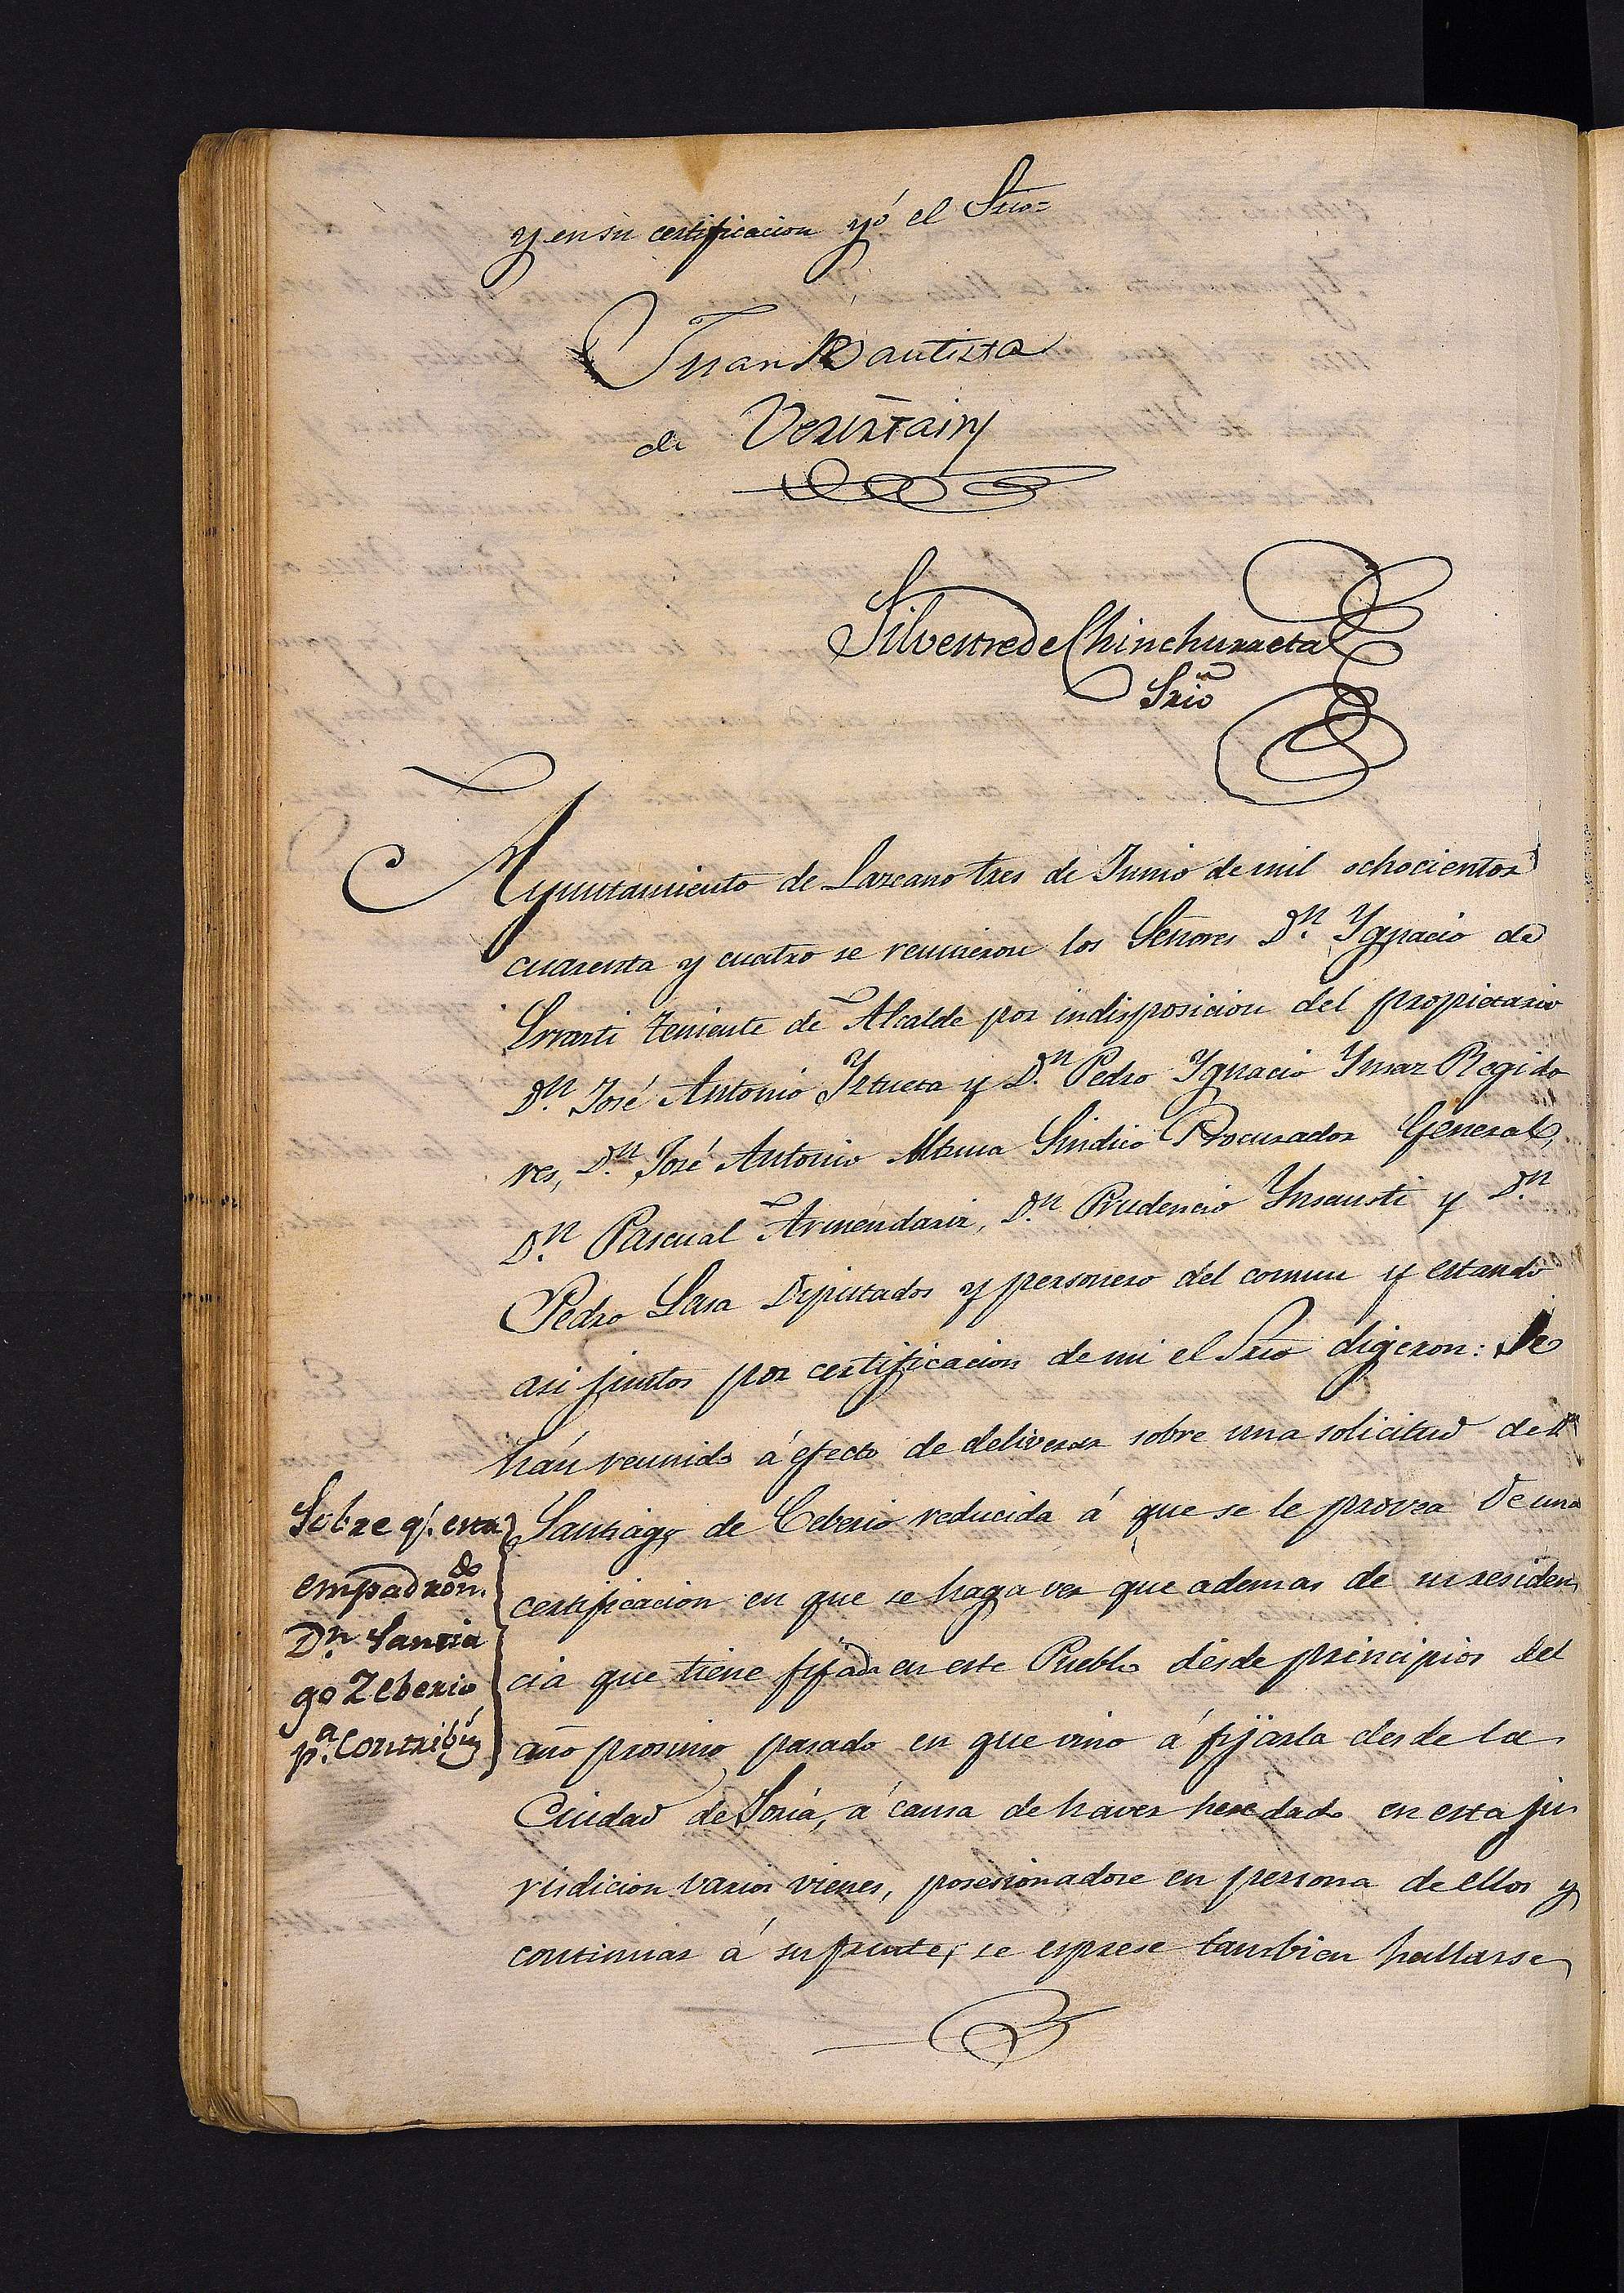 y en su certificacion yó el Srio=
Juan Bautista
de Verástain
Silvestre de Chinchurreta
Srio
Ayuntamiento de Lazcano tres de Junio de mil ochocientos
cuarenta y cuatro se reunieron los Señores Dn. Ygnacio de
teniente de Alcalde por indisposicion del propietario
Dn. José Antonio Yztueta y Dn. Pedro Ygnacio Ynsaz Regido
res, Dn. José Antonio Altuna Sindico Procurador General,
Dn. Pascual Armendariz, Dn. Prudencio Ynsausti y Dn.
Pedro Lasa Diputados y personero del comun y estando
asi juntos por certificacion de mi el Srio digeron: Se
hán reunido á efecto de deliverar sobre una solicitud de Dn
Santiago de Ceberio reducida á que se le provea de una
certificacion en que se haga ver que ademas de su residen
cia que tiene fijada en este Pueblo desde principios del
año prosimo pasado en que vino á fijarla desde la
Ciudad de Soria, á causa de haver heredado en esta ju
risdicion varios vienes, posesionadose en persona de ellos y
continuar á su frente; se esprese tambien hallarse
Sobre q. esta
empadron.do
Dn. Santia
go Zeberio
pa. Contribún